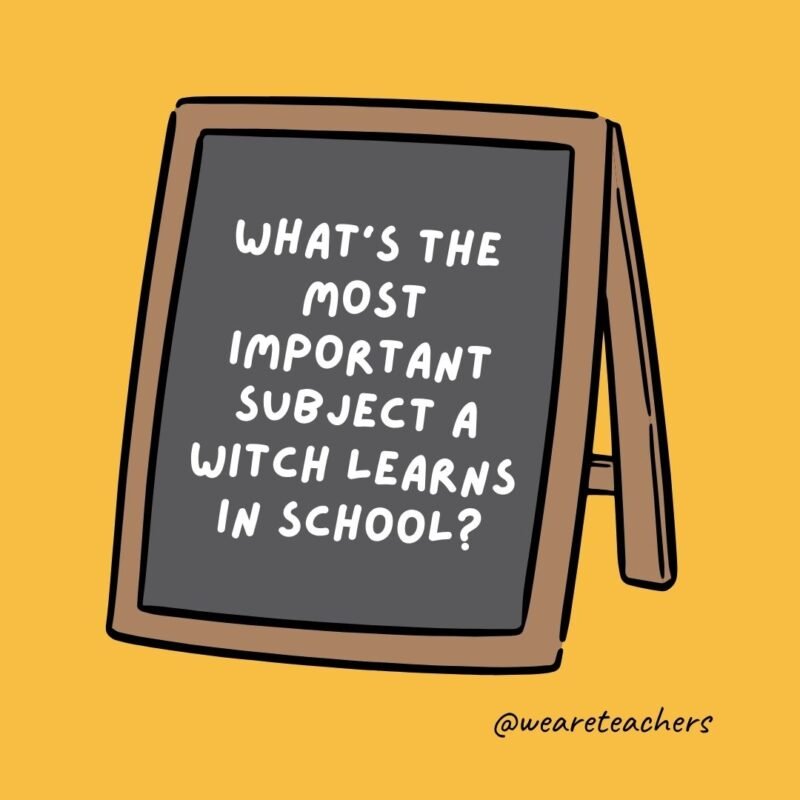 WHAT'S THE
MOST
IMPORTANT
SUBJECT A
WITCH LEARNS
IN SCHOOL?
@weareteachers